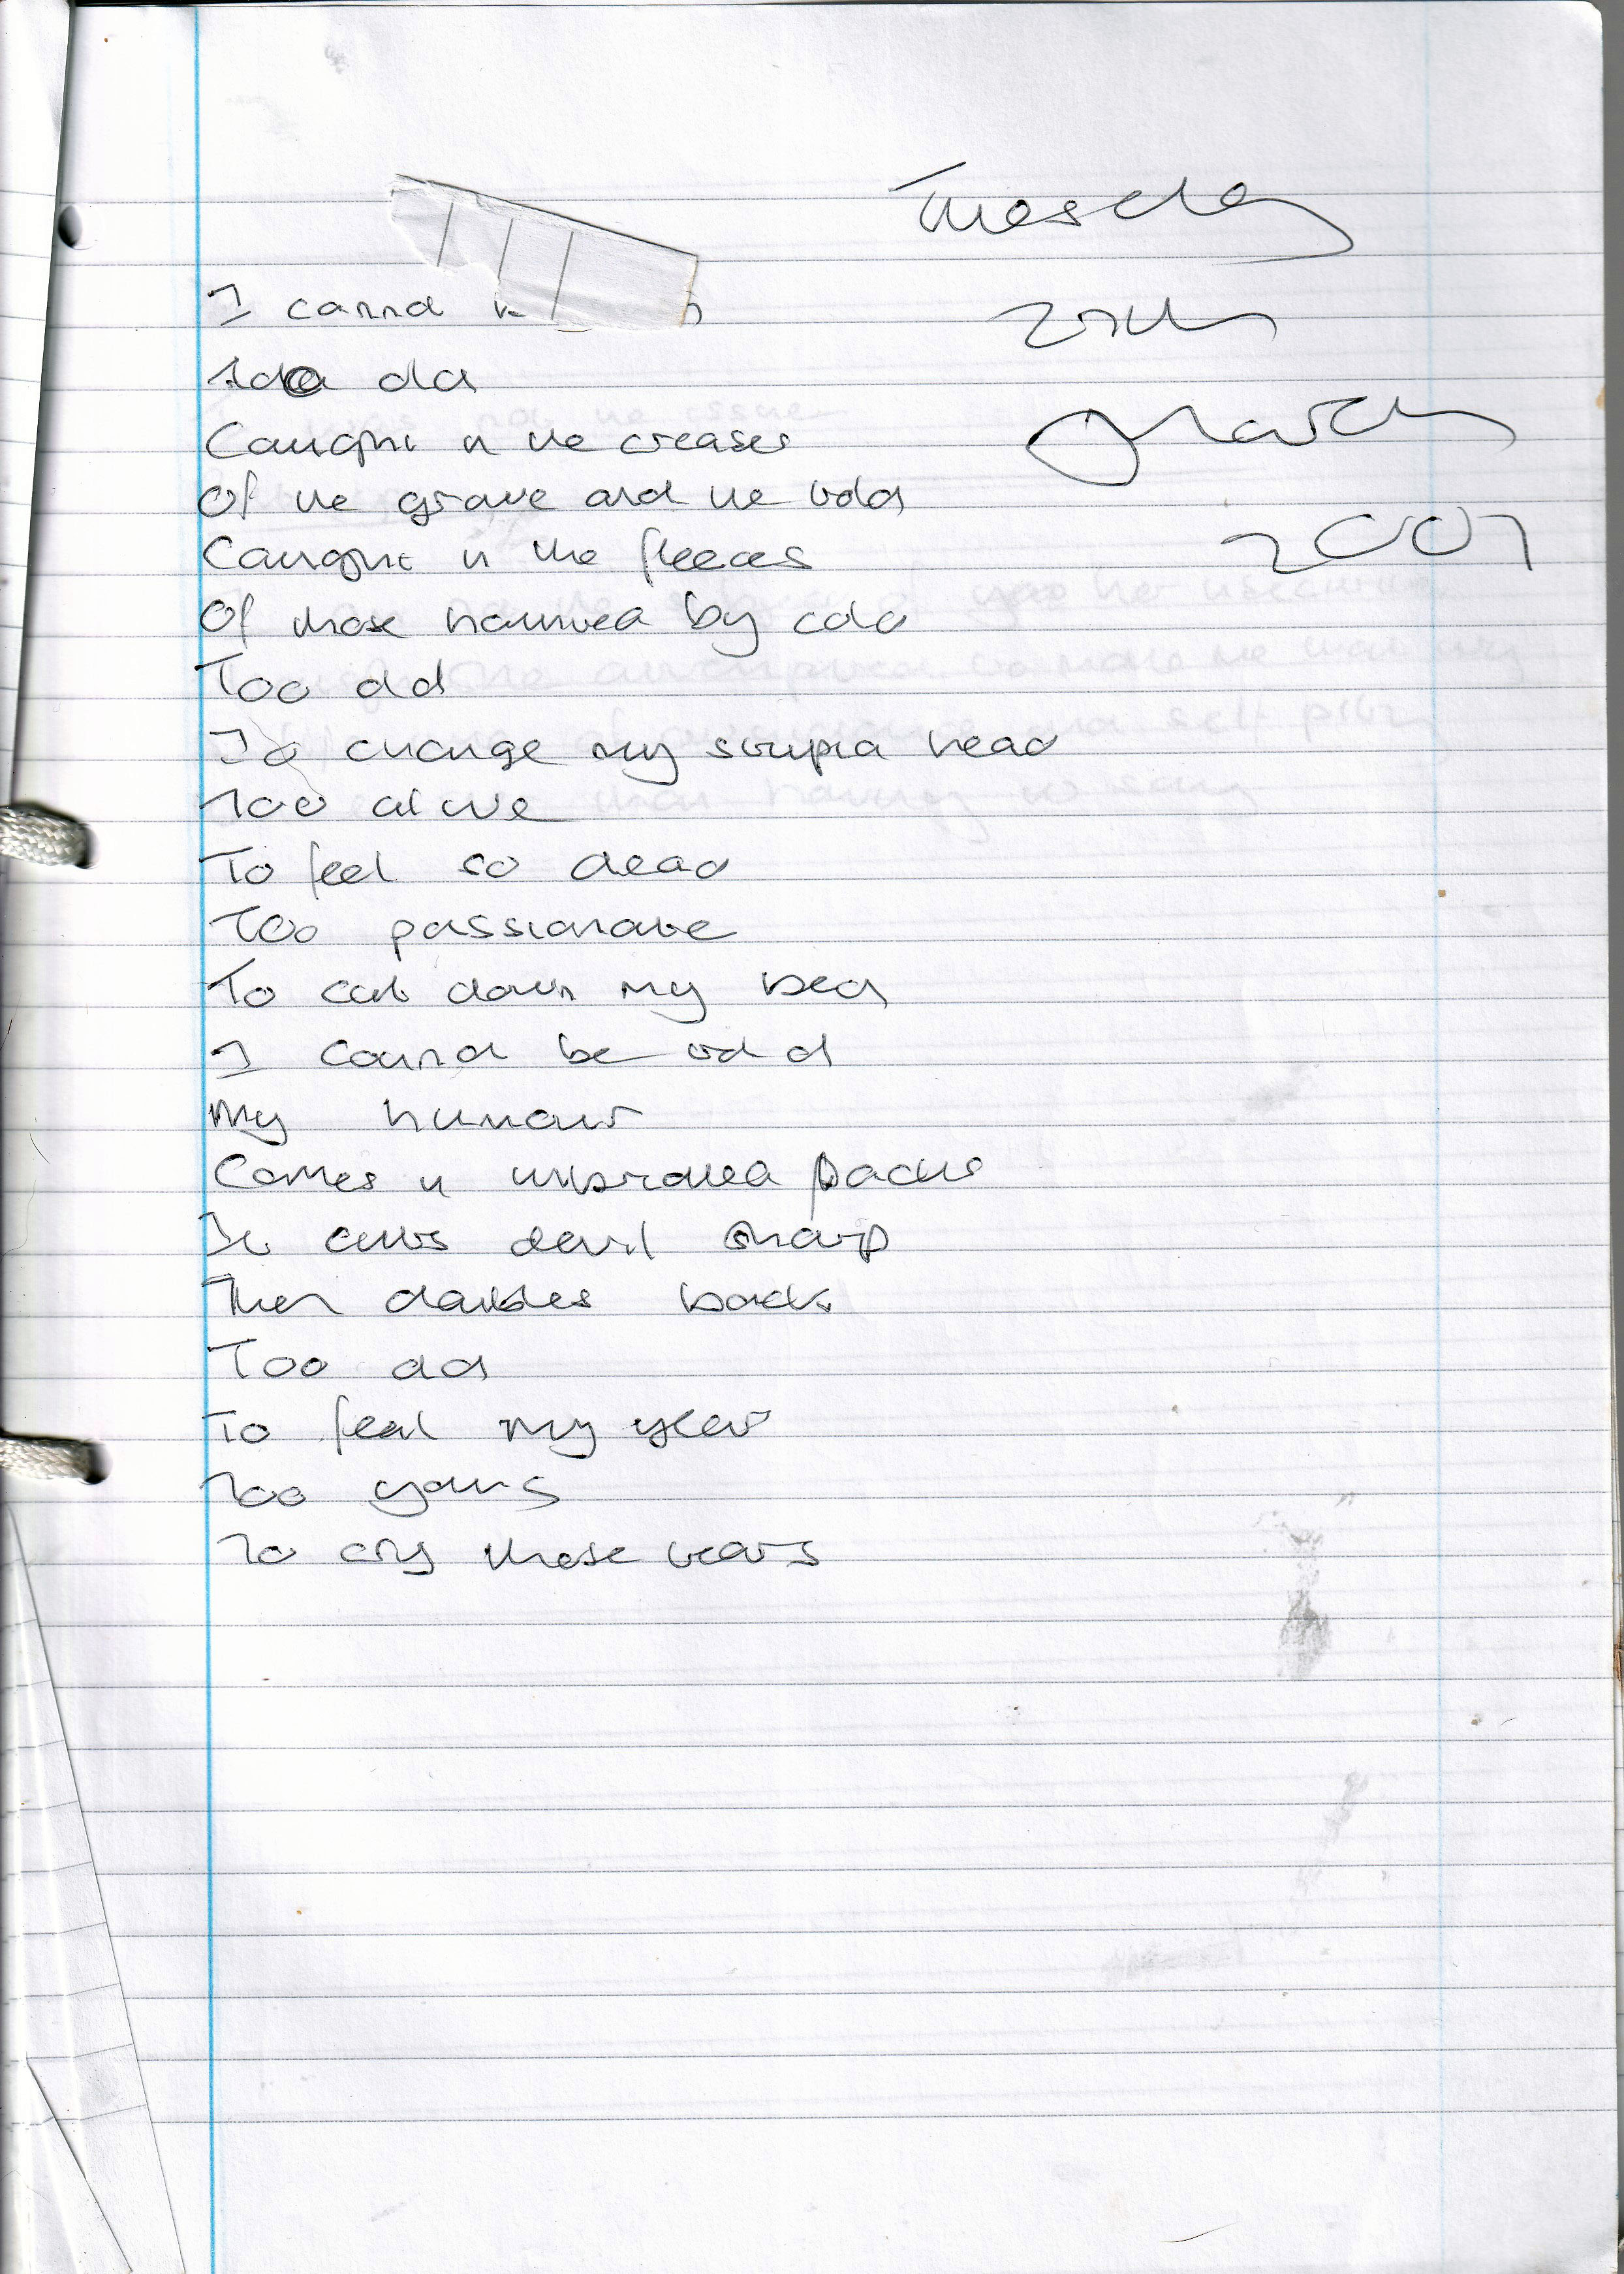 Tuesday
27th
March
2007
I cannot
old
Caught in the creases
Of the grave and the told
Caught in the fleeces
Of those haunted by cold
Too old
To change my stupid head
Too alive
To feel so dead
Too passionate
To eat down my bed
I cannot be told
My humour
Comes in unbroken packs
It cuts devil sharp
Then doubles back
Too old
To feel my years
Too young
To cry these tears